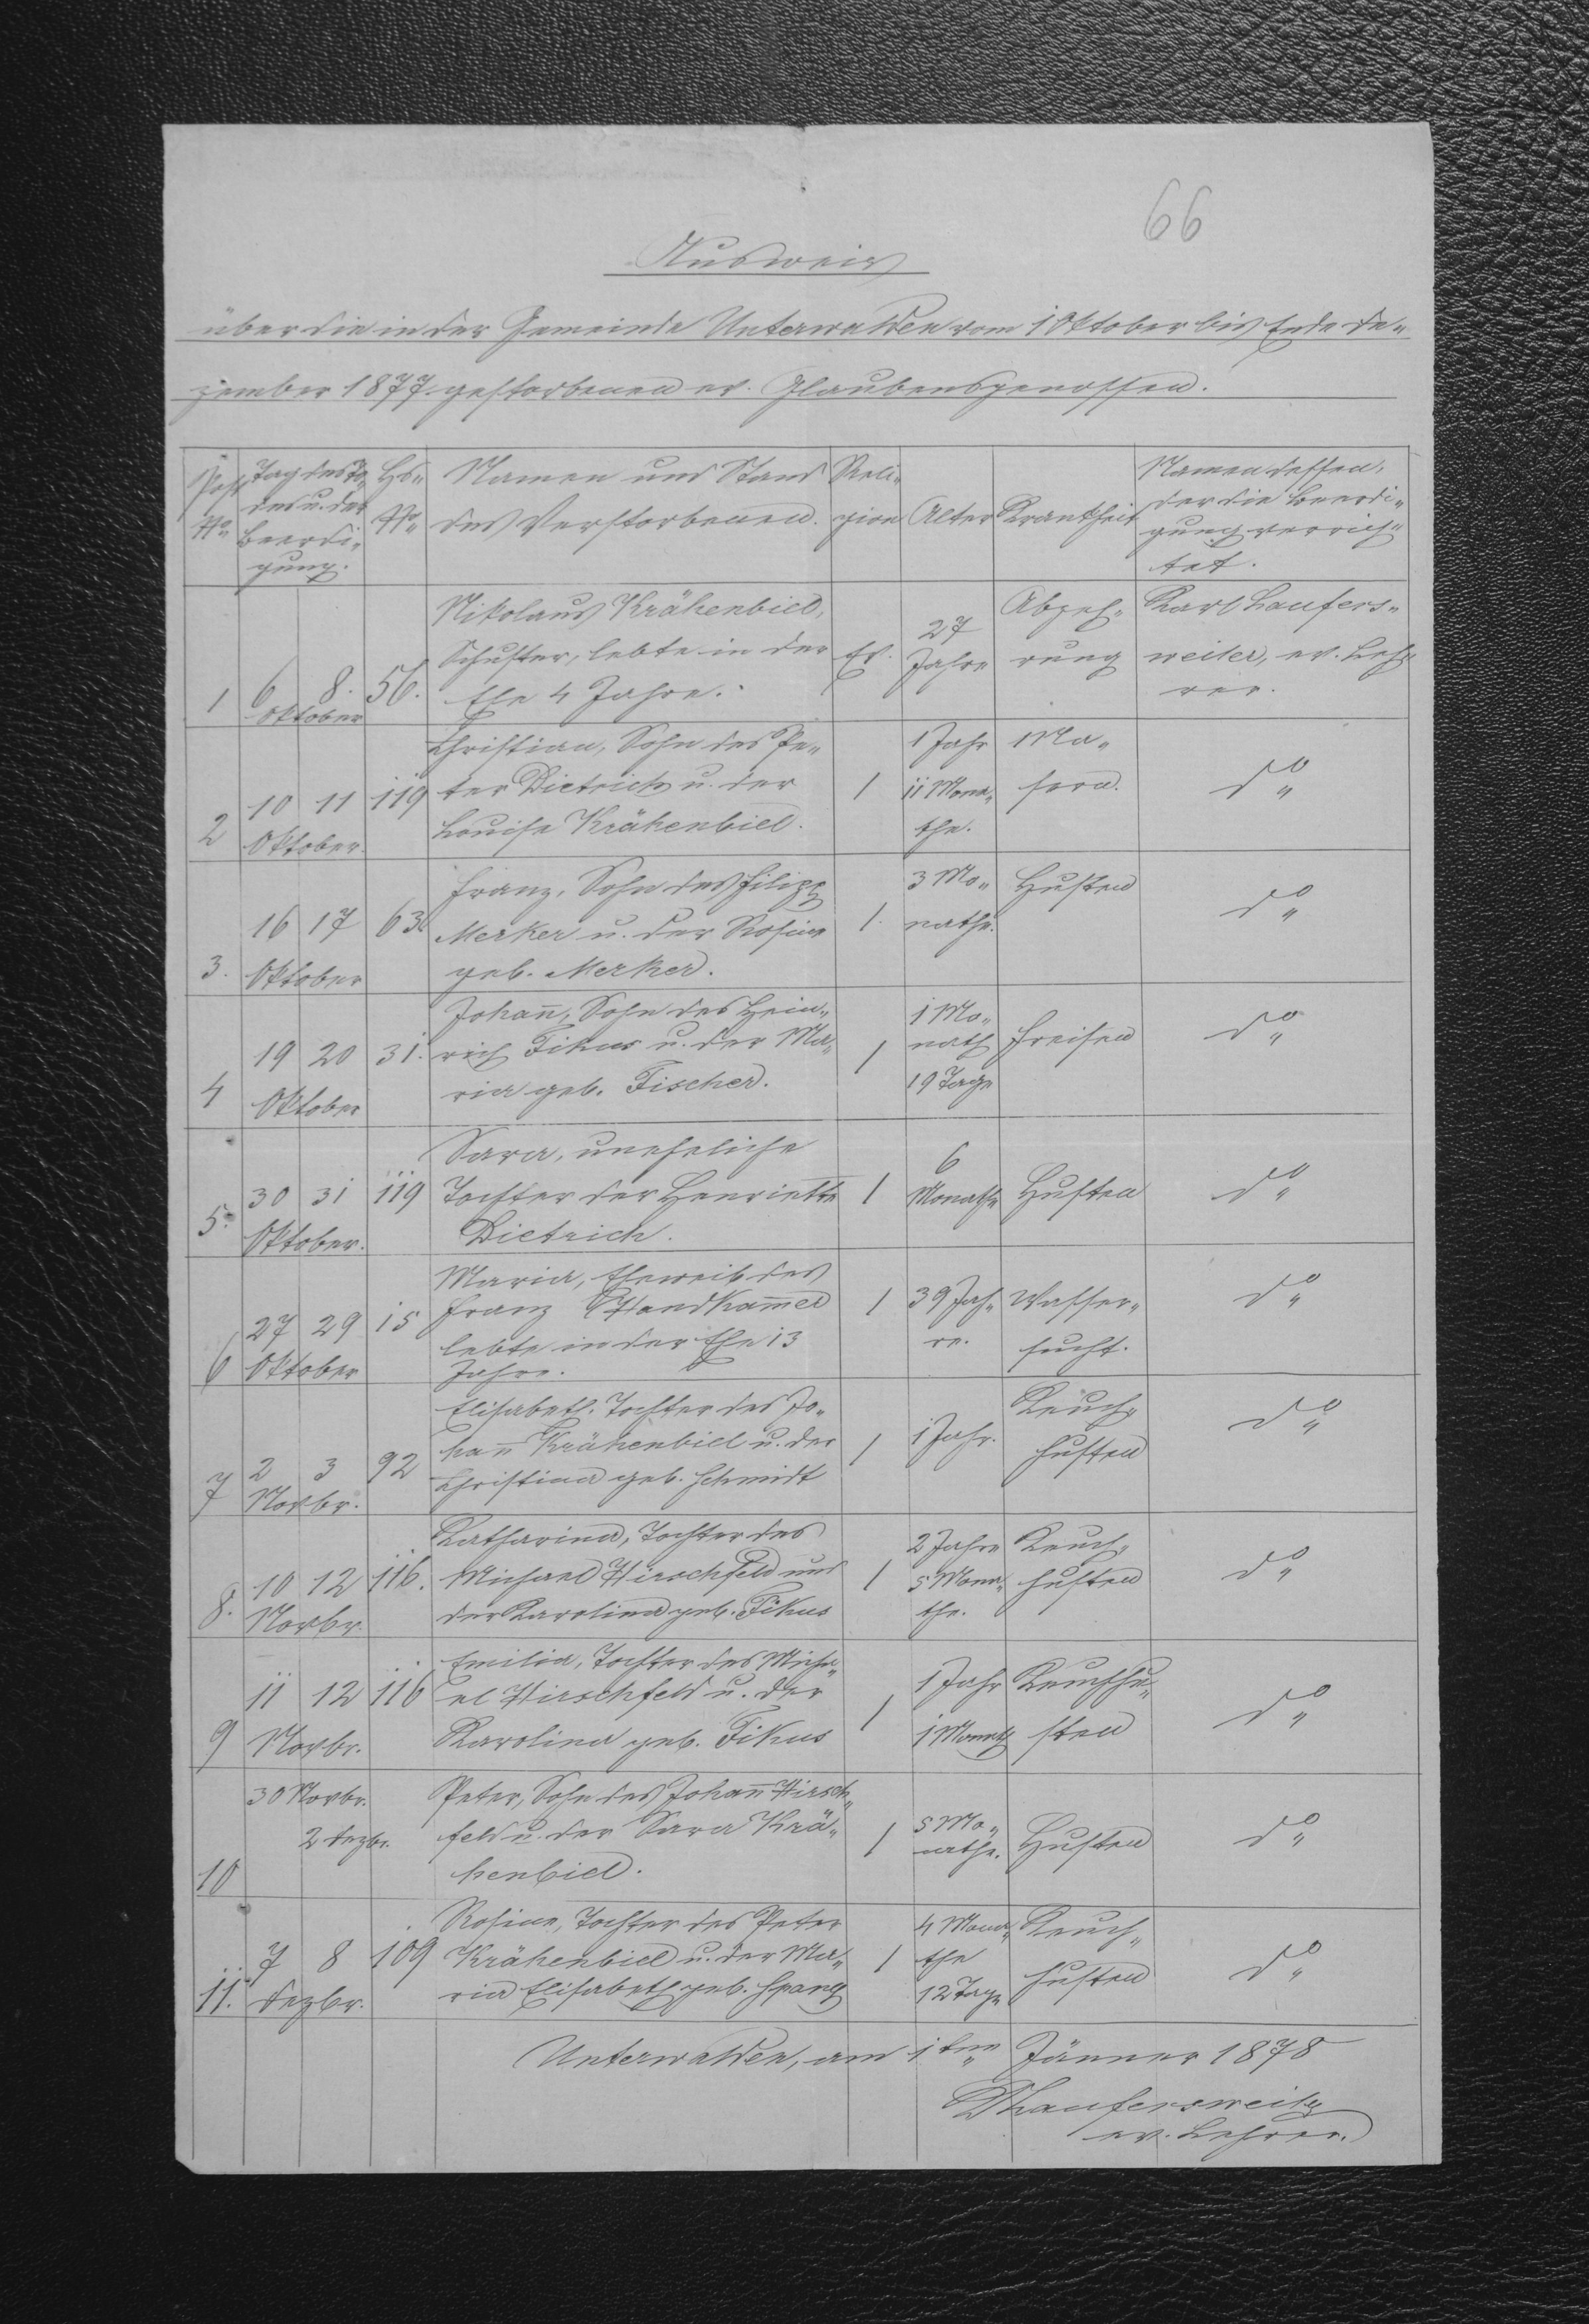 66
Ausweis
über die in der Gemeinde Unterwalden vom 1 Oktober bis Ende De„
zember 1877 gestorbenen ev. Glaubensgenossen.
Post No | Tag des To„ des u. der Beerdi„ gung. | Hs„ No | Namen und Stand des Verstorbenen. | Reli„ gion | Alter | Krankheit | Namen dessen, der die Beerdi„ gung verrich„ tet.
1 | 6 | 8. | Oktober | 56. | Nikolaus Krähenbiel, Schuster, lebte in der Ehe 4 Jahre. | Ev. | 27 Jahre | Abzeh„ rung | Karl Laufers„ weiler, ev. Leh„ rer.
2 | 10 | 11 | Oktober. | 119 | Christian, Sohn des Pe„ ter Dietrich u. der Louise Krähenbiel. | 1 | 1 Jahr 11 Mona„ the. | Ma„ sern. | do„
3. | 16 | 17 | Oktober | 63 | Franz, Sohn des Filipp Merker u. der Rosina geb. Merker. | 1. | 3 Mo„ nathe. | Husten | do„
4 | 19 | 20 | Oktober | 31. | Johañ, Sohn des Hein„ rich Fikus u. der Ma„ ria geb. Fischer. | 1 | 1 Mo„ nath 19 Tage | Freisen | do„
5. | 30 | 31 | Oktober. | 119 | Sara, uneheliche Tochter der Henriette Dietrich. | 1 | 6 Monathe | Husten | do„
6 | 27 | 29 | Oktober | 15 | Maria, Eheweib des Franz Handkam̄er lebte in der Ehe 13 Jahre. | 1 | 39 Jah„ re. | Wasser„ sucht. | do„
7 | 2 | 3 | Novbr. | 92 | Elisabeth. Tochter des Jo„ hañ Krähenbiel u. der Christina geb. Schmidt | 1 | 1 Jahr. | Keuch„ husten | do„
8. | 10 | 12 | Novbr. | 116. | Katharina, Tochter des Michael Hirschfeld und der Karolina geb. Fikus | 1 | 2 Jahre 5 Mona„ the. | Keuch„ husten | do„
9 | 11 | 12 | Novbr. | 116 | Emilia, Tochter des Micha„ el Hirschfeld u. der Karolina geb. Fikus | 1 | 1 Jahr 1 Monath | Keuchhu„ sten | do„
10 | 30 Novbr. | 2 Dezbr. | Peter, Sohn des Johañ Hirsch„ feld u. der Sara Krä„ henbiel. | 1 | 5 Mo„ nathe. | Husten | do„
11. | 7 | 8 | Dezbr. | 109 | Rosina, Tochter des Peter Krähenbiel u. der Ma„ ria Elisabeth geb. Spang | 1 | 4 Mona„ the 12 Tage | Keuch„ husten | do„
Unterwalden, am 1ten Jänner 1878
Laufersweiler
ev. Lehrer.